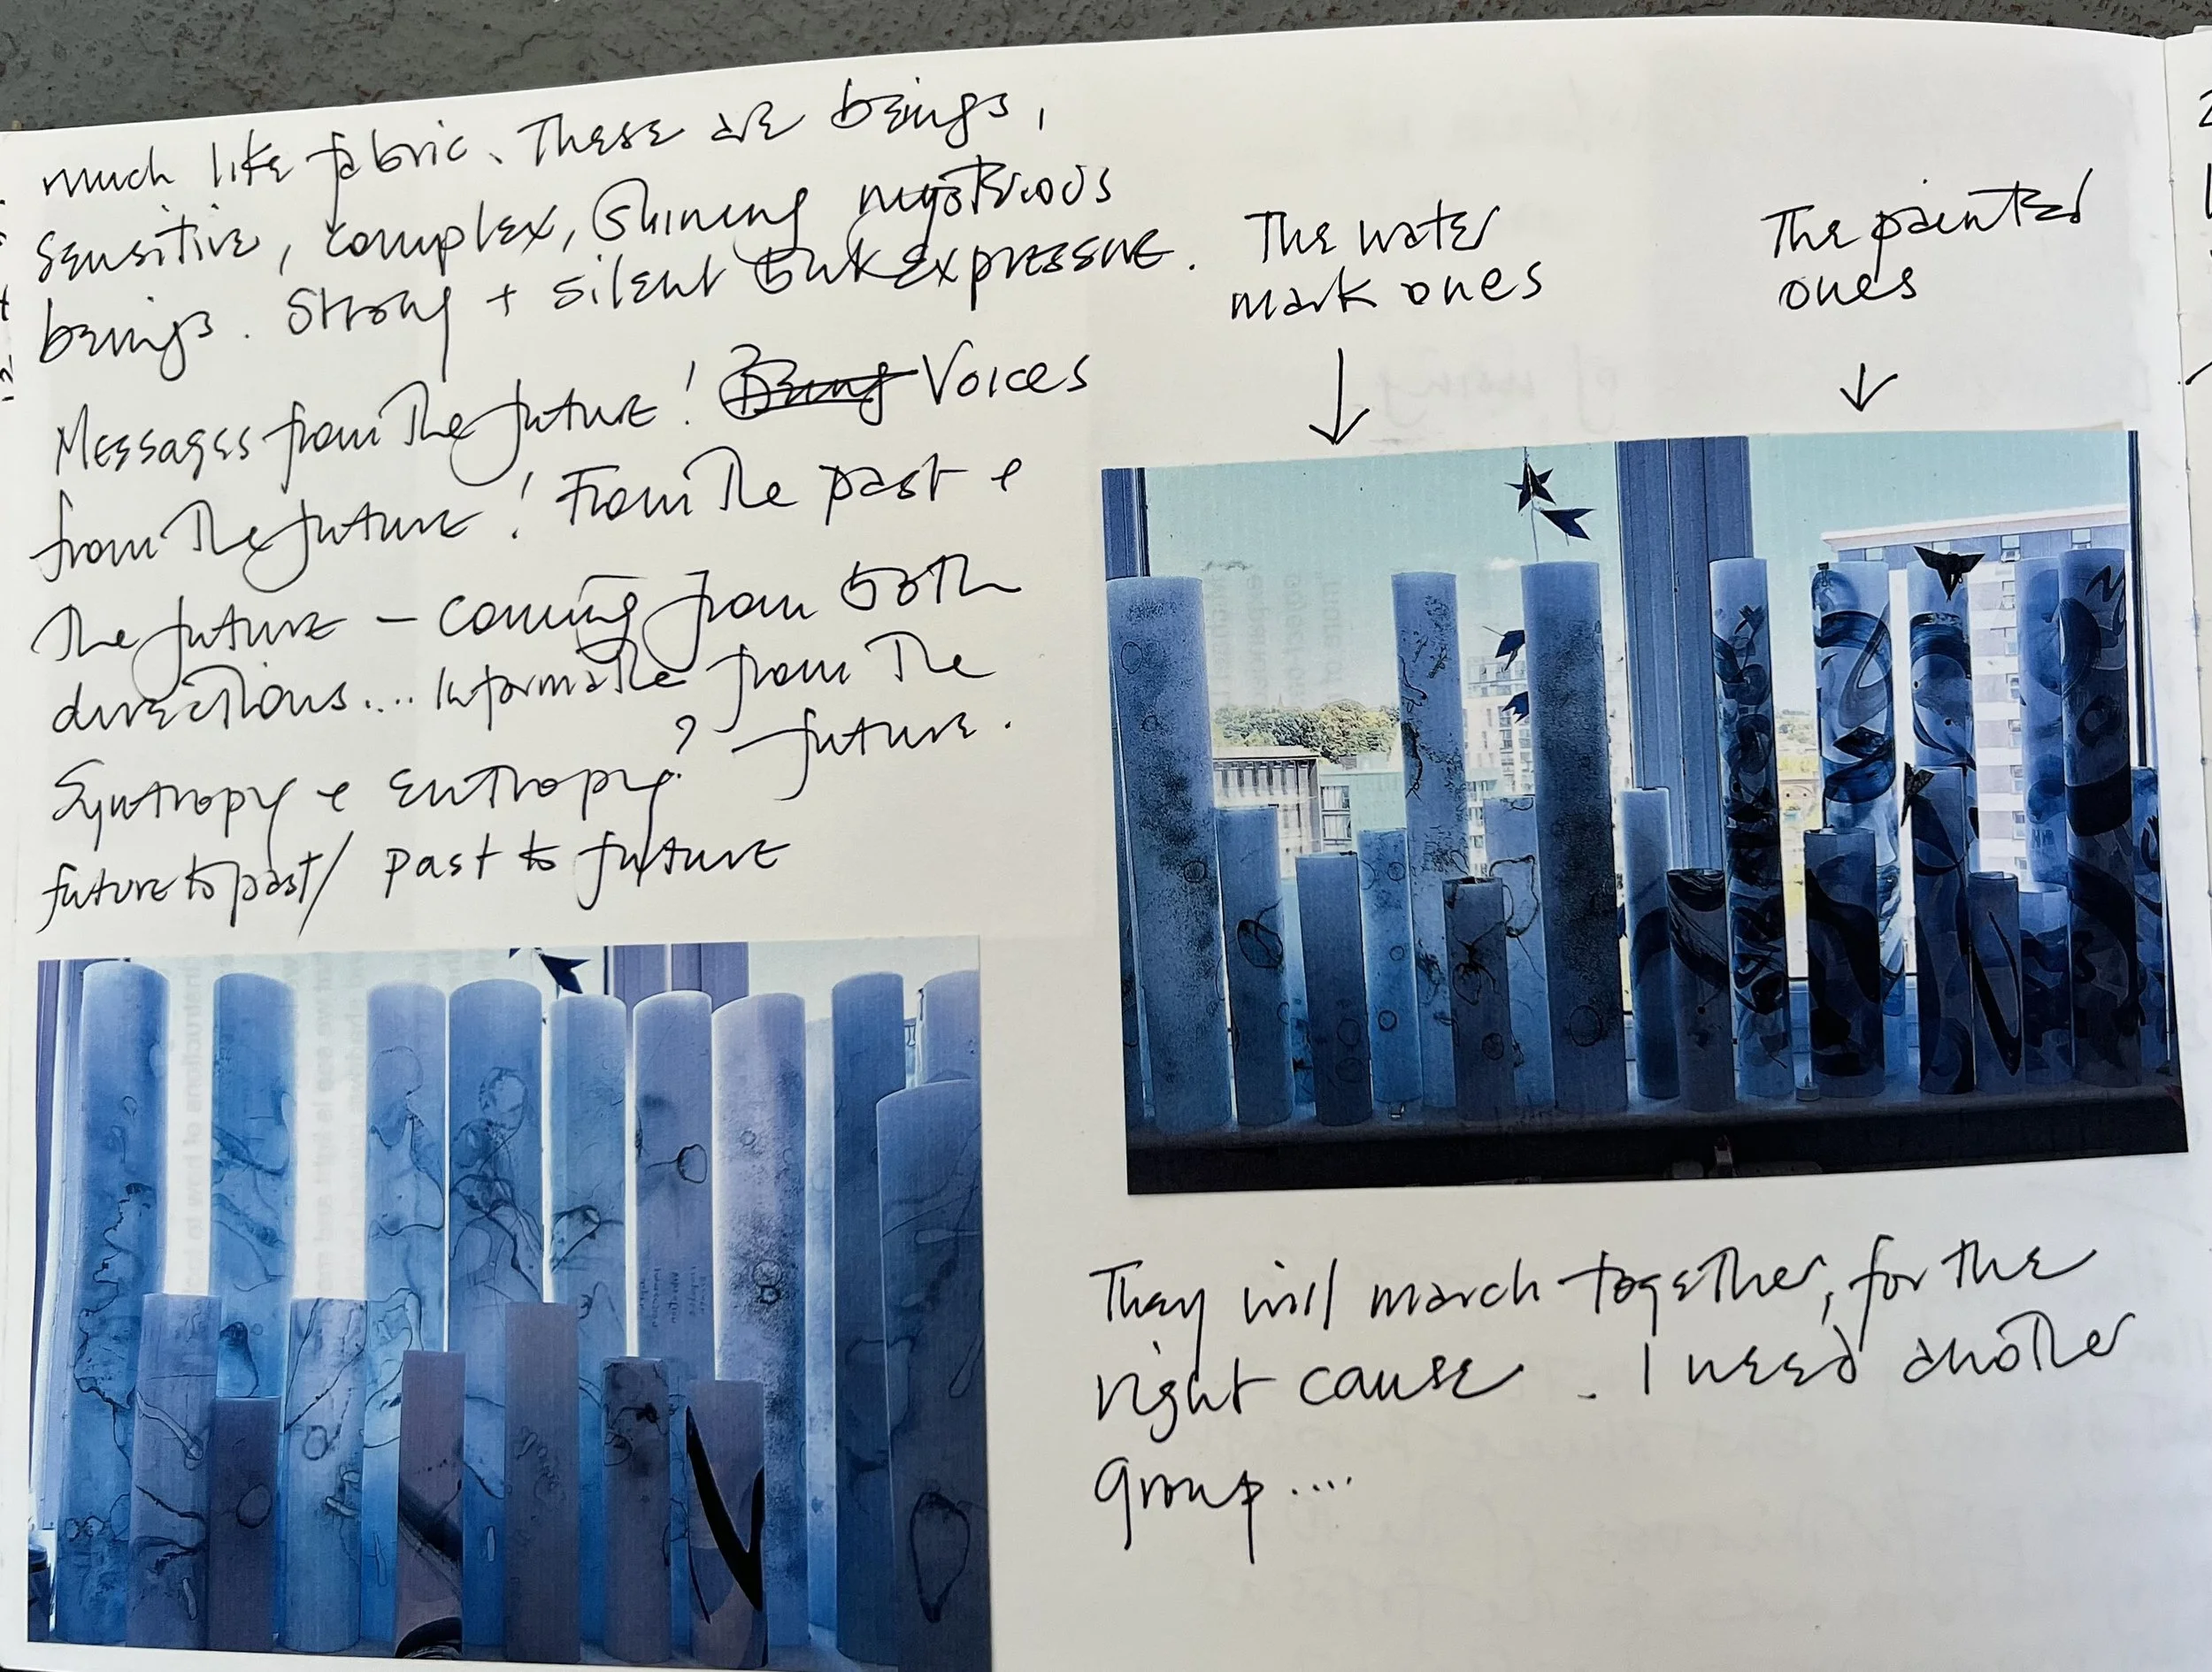 much like fabric. These are beings,
sensitive, complex, shining mysterious
beings. Strong + silent but expressive.
Messages from the future! Voices
from the future! From the past &
the future – coming from both
directions.... Informatie from the
future.
Syntropy & entropy?
future to past/ past to future
The water
mark ones
The painted
ones
They will march together, for the
right cause. I need another
group....